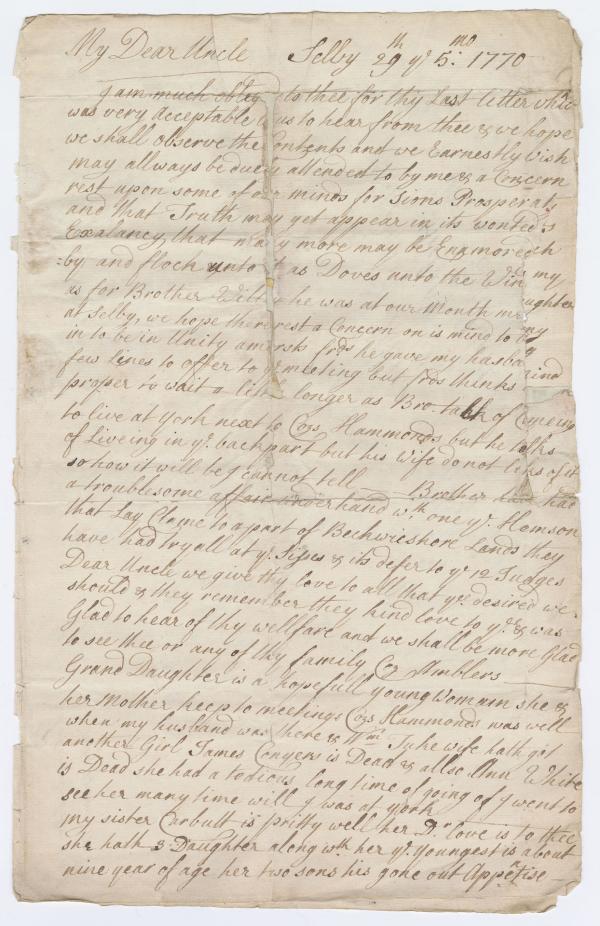 My Dear Uncle Selby 29th ye 5mo: 1770
I am much oblig to thee for thy Last letter which
was very acceptable to us to hear from thee & we hope
we shall observe the Contents and we Earnestly wish
may allways be duely attended to by me & a Concern
rest upon some of our minds for Sions Prosperaty
and that Truth may yet appear in its wonted
Exalancy, that many more may be Enamored
by and flock unto it as Doves unto the Win my
as for Brother he was at our Month
at Selby, we hope there rest a Concern on is mind to
in to be in Unity amorsk frds he gave my husban
few Lines to offer to ye meeting but frds thinks
proper to wait a litle longer as Bro talk of Comeing
to live at York next to Cozs Hammonds but he talks
of Liveing in ye back part but his Wife do not like of it
so how it will be I cannot tell — Brother have had
a troublesome affair underhand wth one ye Homson
that Lay Clame to a part of Beckwieshore Lands they
have had tryall at ye Sises & its defer to ye 12 Judges
Dear Uncle we give thy love to all that ye desired we
should & they remember they kind love to ye & was
Glad to hear of thy wellfare and we shall be more Glad
to see thee or any of thy family Coz Amblers
Grand Daughter is a hopefull young Womam she &
her Mother keep to meetings Cozs Hammonds was well
when my husband was there & Wm Tuke wife hath got
another Girl James Conyers is Dead & allso Ann White
is Dead she had a tedious long time of going of I went to
see her many time will I was at york
my sister Corbutt is pritty well her Dr love is to thee
she hath 3 Daughter along wth her ye youngest is about
nine year of age her two sons his gone out Appretise